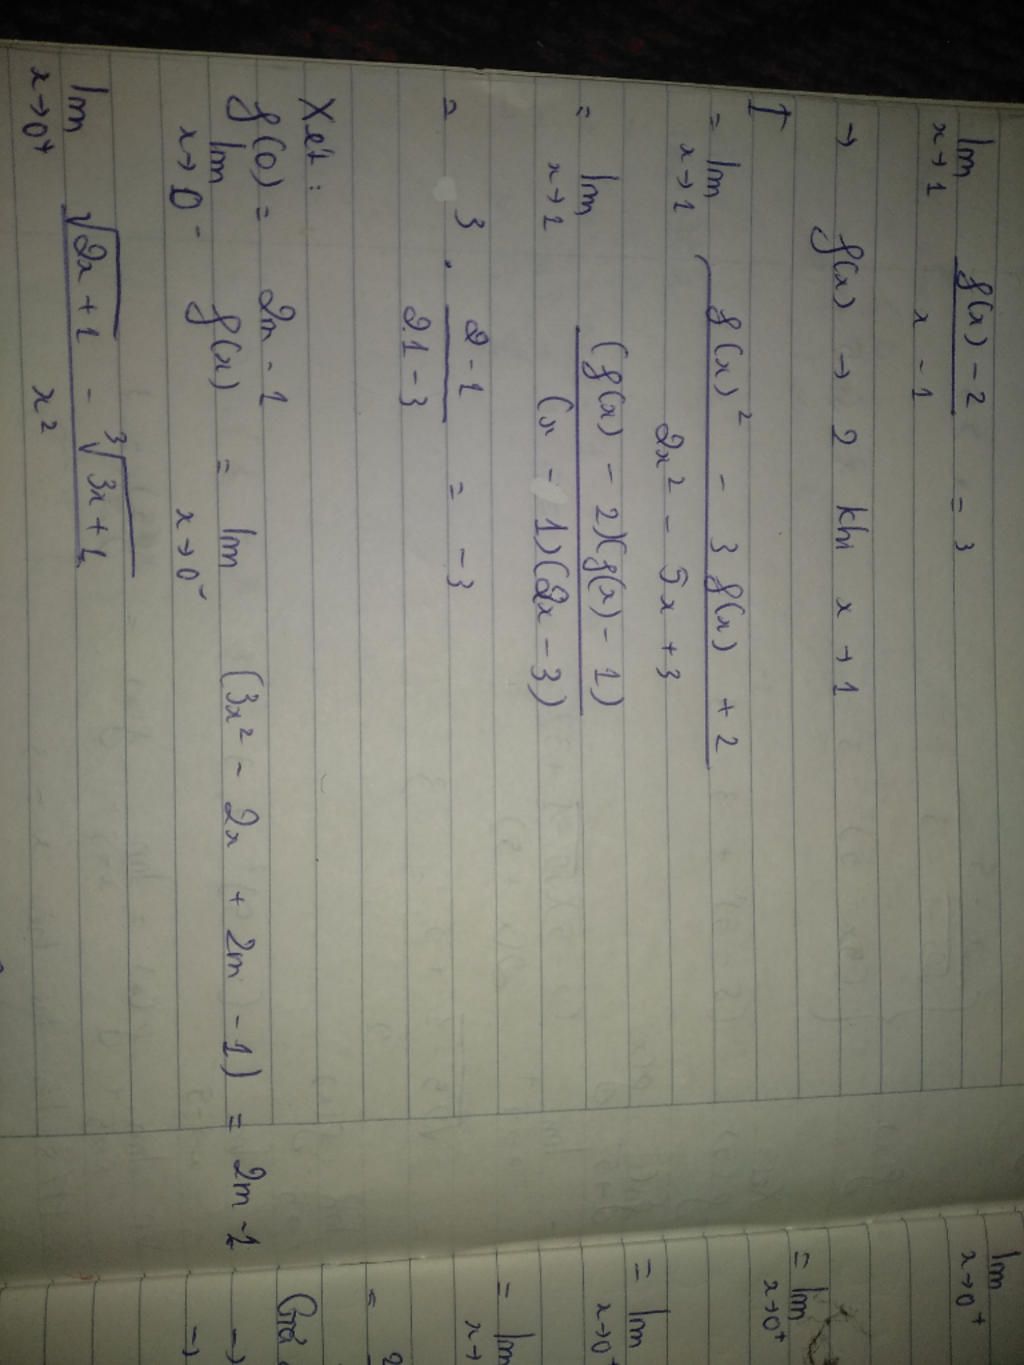 lim x→1 (f(x) - 2)/(x - 1) = 3
→ f(x) → 2 khi x → 1
I = lim x→1 (f(x)² - 3f(x) + 2)/(2x² - 5x + 3)
= lim x→1 (f(x) - 2)(f(x) - 1)/((x - 1)(2x - 3))
= 3 . (2 - 1)/(2.1 - 3) = -3
Xét :
f(0) = 2m - 1
lim x→0⁻ f(x) = lim x→0⁻ (3x² - 2x + 2m - 1) = 2m - 1
lim x→0⁺ (√(2x + 1) - ³√(3x + 1))/x²
lim x→0⁺
= lim x→0⁺
= lim x→0⁺
= lim x→
=
→
→